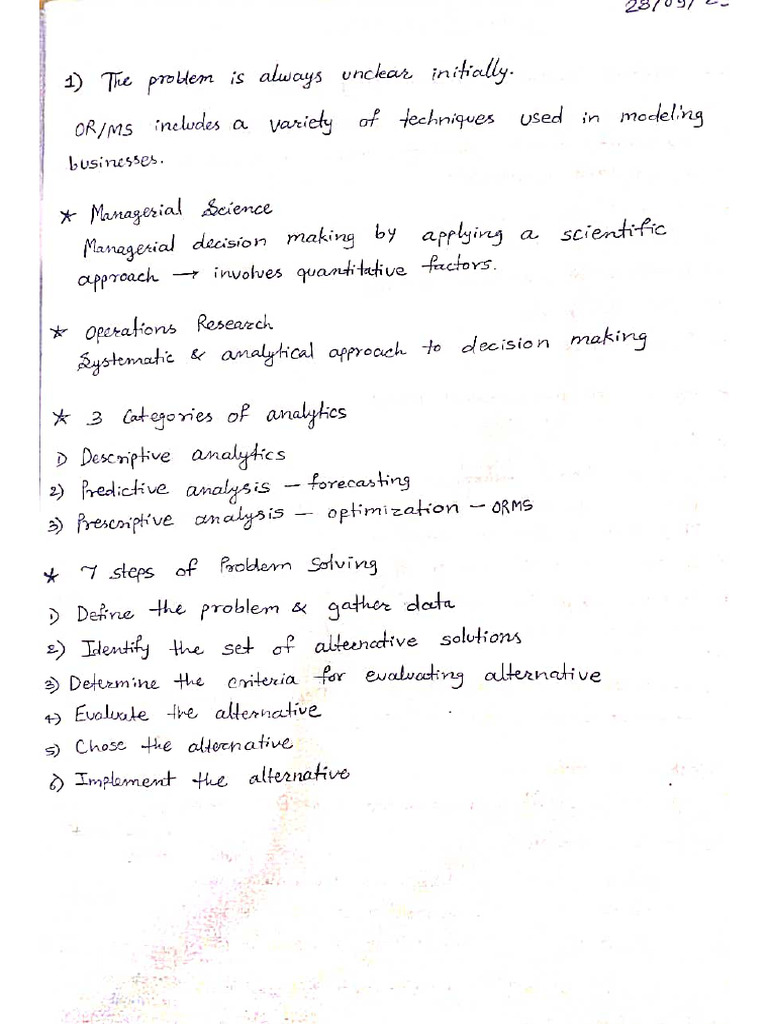 1) The problem is always unclear initially.
OR/MS includes a variety of techniques used in modeling
businesses.
* Managerial Science
Managerial decision making by applying a scientific
approach → involves quantitative factors.
* Operations Research
Systematic & analytical approach to decision making
* 3 Categories of analytics
1) Descriptive analytics
2) Predictive analysis – forecasting
3) Prescriptive analysis – optimization – ORMS
* 7 steps of Problem Solving
1) Define the problem & gather data
2) Identify the set of alternative solutions
3) Determine the criteria for evaluating alternative
4) Evaluate the alternative
5) Chose the alternative
6) Implement the alternative